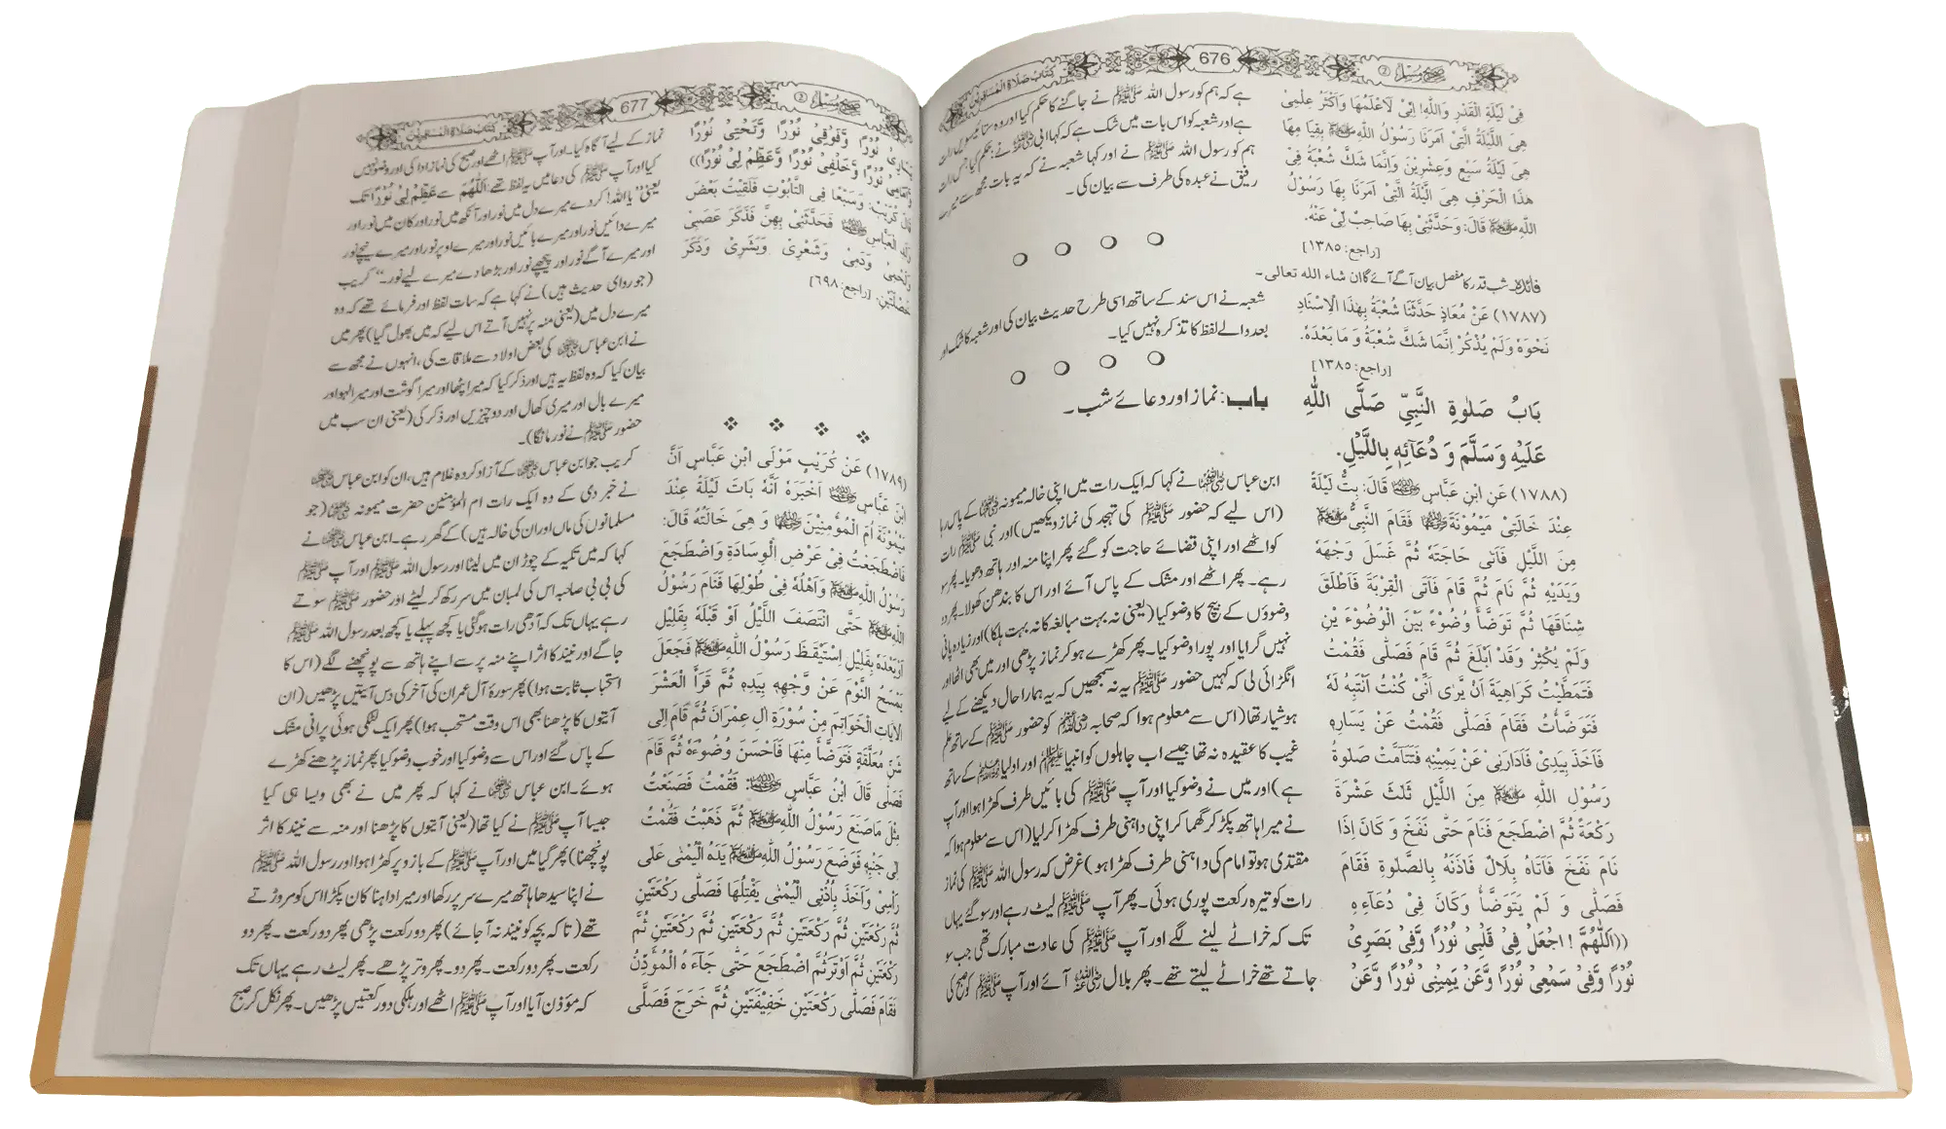 صحیح مسلم ②
676
کتاب صلاة المسافرین
فِیْ لَیْلَةِ الْقَدْرِ وَاللّٰهِ! اِنِّیْ لَاَعْلَمُهَا وَاَكْثَرُ عِلْمِیْ
هِیَ اللَّیْلَةُ الَّتِیْ اَمَرَنَا رَسُوْلُ اللّٰهِ ﷺ بِقِیَا مِهَا
هِیَ لَیْلَةُ سَبْعٍ وَعِشْرِیْنَ وَاِنَّمَا شَكَّ شُعْبَةُ فِیْ
هٰذَا الْحَرْفِ هِیَ الَّلیْلَةُ الَّتِیْ اَمَرَنَا بِهَا رَسُوْلُ
اللّٰهِ ﷺ قَالَ: وَحَدَّثَنِیْ بِهَا صَاحِبٌ لِیْ عَنْهُ.
[راجع: ١٣٨٥]
فائدہ۔ شب قدر کا مفصل بیان آگے آئے گا ان شاء الله تعالی۔
(١٧٨٧) عَنْ مُعَاذٍ حَدَّثَنَا شُعْبَةُ بِهٰذَا الْاِسْنَادِ
نَحْوَهٗ وَلَمْ یَذْكُرْ اِنَّمَا شَكَّ شُعْبَةُ وَ مَا بَعْدَهٗ.
[راجع: ١٣٨٥]
بَابُ صَلٰوةِ النَّبِیِّ صَلَّی اللّٰهُ
عَلَیْهِ وَسَلَّمَ وَ دُعَآئِهٖ بِاللَّیْلِ.
(١٧٨٨) عَنِ ابْنِ عَبَّاسٍ ؓ قَالَ: بِتُّ لَیْلَةً
عِنْدَ خَالَتِیْ مَیْمُوْنَةَ ؓ فَقَامَ النَّبِیُّ ﷺ
مِنَ اللَّیْلِ فَاَتٰی حَاجَتَهٗ ثُمَّ غَسَلَ وَجْهَهٗ
وَیَدَیْهِ ثُمَّ نَامَ ثُمَّ قَامَ فَاَتَی الْقِرْبَةَ فَاَطْلَقَ
شِنَاقَهَا ثُمَّ تَوَضَّأَ وُضُوْءً بَیْنَ الْوُضُوْءَ یْنِ
وَلَمْ یُكْثِرْ وَقَدْ اَبْلَغَ ثُمَّ قَامَ فَصَلّٰی فَقُمْتُ
فَتَمَطَّیْتُ كَرَاهِیَةَ اَنْ یَّرٰی اَنِّیْ كُنْتُ اَنْتَبِهُ لَهٗ
فَتَوَضَّأْتُ فَقَامَ فَصَلّٰی فَقُمْتُ عَنْ یَسَارِهٖ
فَاَخَذَ بِیَدِیْ فَاَدَارَنِیْ عَنْ یَمِیْنِهٖ فَتَتَامَّتْ صَلٰوةُ
رَسُوْلِ اللّٰهِ ﷺ مِنَ اللَّیْلِ ثَلٰثَ عَشْرَةَ
رَكْعَةً ثُمَّ اضْطَجَعَ فَنَامَ حَتّٰی نَفَخَ وَ كَانَ اِذَا
نَامَ نَفَخَ فَاَتَاهُ بِلَالٌ فَاٰذَنَهٗ بِالصَّلٰوةِ فَقَامَ
فَصَلّٰی وَ لَمْ یَتَوَضَّأْ وَكَانَ فِیْ دُعَآءِ هٖ
((اَللّٰهُمَّ ! اجْعَلْ فِیْ قَلْبِیْ نُوْرًا وَّفِیْ بَصَرِیْ
نُوْرًا وَّفِیْ سَمْعِیْ نُوْرًا وَّعَنْ یَمِیْنِیْ نُوْرًا وَّعَنْ
ہے کہ ہم کو رسول اللہ ﷺ نے جاگنے کا حکم کیا اور وہ ستائیسویں رات
ہے اور شعبہ کو اس بات میں شک ہے کہ کہا ابیؓ نے: حکم کیا جس رات
ہم کو رسول اللہ ﷺ نے اور کہا شعبہ نے کہ یہ بات مجھ سے میرے
رفیق نے عبدہ کی طرف سے بیان کی۔
شعبہ نے اس سند کے ساتھ اسی طرح حدیث بیان کی اور شعبہ کا شک اور
بعد والے لفظ کا تذکرہ نہیں کیا۔
باب: نماز اور دعائے شب۔
ابن عباس ؓ نے کہا کہ ایک رات میں اپنی خالہ میمونہ ؓ کے پاس رہا
(اس لیے کہ حضور ﷺ کی تہجد کی نماز دیکھیں) اور نبی ﷺ رات
کو اٹھے اور اپنی قضائے حاجت کو گئے پھر اپنا منہ اور ہاتھ دھویا۔ پھر سو
رہے۔ پھر اٹھے اور مشک کے پاس آئے اور اس کا بندھن کھولا۔ پھر دو
وضووں کے بیچ کا وضو کیا (یعنی نہ بہت مبالغہ کا نہ بہت ہلکا) اور زیادہ پانی
نہیں گرایا اور پورا وضو کیا۔ پھر کھڑے ہو کر نماز پڑھی اور میں بھی اٹھا اور
انگڑائی لی کہ کہیں حضور ﷺ یہ نہ سمجھیں کہ یہ ہمارا حال دیکھنے کے لیے
ہوشیار تھا (اس سے معلوم ہوا کہ صحابہ ؓ کو حضور ﷺ کے ساتھ علم
غیب کا عقیدہ نہ تھا جیسے اب جاہلوں کو انبیاء اور اولیا کے ساتھ
ہے) اور میں نے وضو کیا اور آپ ﷺ کی بائیں طرف کھڑا ہوا اور آپ
نے میرا ہاتھ پکڑ کر گھما کر اپنی داہنی طرف کھڑا کر لیا (اس سے معلوم ہوا کہ
مقتدی ہو تو امام کی داہنی طرف کھڑا ہو) غرض کہ رسول اللہ ﷺ کی نماز
رات کو تیرہ رکعت پوری ہوئی۔ پھر آپ ﷺ لیٹ رہے اور سو گئے یہاں
تک کہ خراٹے لینے لگے اور آپ ﷺ کی عادت مبارک تھی جب سو
جاتے تھے خراٹے لیتے تھے۔ پھر بلال ؓ آئے اور آپ ﷺ کو صبح کی
صحیح مسلم ②
677
کتاب صلاة المسافرین
نُوْرًا وَّفَوْقِیْ نُوْرًا وَّتَحْتِیْ نُوْرًا
نُوْرًا وَّخَلْفِیْ نُوْرًا وَّعَظِّمْ لِیْ نُوْرًا))
قَالَ كُرَیْبٌ: وَسَبْعًا فِی التَّابُوْتِ فَلَقِیْتُ بَعْضَ
وَلَدِ الْعَبَّاسِ ؓ فَحَدَّثَنِیْ بِهِنَّ فَذَكَرَ عَصَبِیْ
وَلَحْمِیْ وَدَمِیْ وَشَعْرِیْ وَبَشَرِیْ وَذَكَرَ
خَصْلَتَیْنِ. [راجع: ٦٩٨]
(١٧٨٩) عَنْ كُرَیْبٍ مَوْلَی ابْنِ عَبَّاسٍ اَنَّ
ابْنَ عَبَّاسٍ ؓ اَخْبَرَهٗ اَنَّهٗ بَاتَ لَیْلَةً عِنْدَ
مَیْمُوْنَةَ اُمِّ الْمُؤْمِنِیْنَ ؓ وَ هِیَ خَالَتُهٗ قَالَ:
فَاضْطَجَعْتُ فِیْ عَرْضِ الْوِسَادَةِ وَاضْطَجَعَ
رَسُوْلُ اللّٰهِ ﷺ وَاَهْلُهٗ فِیْ طُوْلِهَا فَنَامَ رَسُوْلُ
اللّٰهِ ﷺ حَتَّی انْتَصَفَ اللَّیْلُ اَوْ قَبْلَهٗ بِقَلِیْلٍ
اَوْ بَعْدَهٗ بِقَلِیْلٍ اِسْتَیْقَظَ رَسُوْلُ اللّٰهِ ﷺ فَجَعَلَ
یَمْسَحُ النَّوْمَ عَنْ وَّجْهِهٖ بِیَدِهٖ ثُمَّ قَرَأَ الْعَشْرَ
الْاٰیَاتِ الْخَوَاتِمَ مِنْ سُوْرَةِ اٰلِ عِمْرَانَ ثُمَّ قَامَ اِلٰی
شَنٍّ مُعَلَّقَةٍ فَتَوَضَّأَ مِنْهَا فَاَحْسَنَ وُضُوْءَهٗ ثُمَّ قَامَ
فَصَلّٰی قَالَ ابْنُ عَبَّاسٍ ؓ: فَقُمْتُ فَصَنَعْتُ
مِثْلَ مَاصَنَعَ رَسُوْلُ اللّٰهِ ﷺ ثُمَّ ذَهَبْتُ فَقُمْتُ
اِلٰی جَنْبِهٖ فَوَضَعَ رَسُوْلُ اللّٰهِ ﷺ یَدَهُ الْیُمْنٰی عَلٰی
رَاْسِیْ وَاَخَذَ بِاُذُنِی الْیُمْنٰی یَفْتِلُهَا فَصَلّٰی رَكْعَتَیْنِ
ثُمَّ رَكْعَتَیْنِ ثُمَّ رَكْعَتَیْنِ ثُمَّ رَكْعَتَیْنِ ثُمَّ رَكْعَتَیْنِ ثُمَّ
رَكْعَتَیْنِ ثُمَّ اَوْتَرَثُمَّ اضْطَجَعَ حَتّٰی جَآءَ هُ الْمُؤَذِّنُ
فَقَامَ فَصَلّٰی رَكْعَتَیْنِ خَفِیْفَتَیْنِ ثُمَّ خَرَجَ فَصَلَّی
نماز کے لیے آگاہ کیا۔ اور آپ ﷺ اٹھے اور صبح کی نماز ادا کی اور وضو نہیں
کیا اور آپ ﷺ کی دعا میں یہ لفظ تھے: اَللّٰهُمَّ سے عَظِّمْ لِیْ نُوْرًا تک
یعنی ”یا اللہ! کر دے میرے دل میں نور اور آنکھ میں نور اور کان میں نور اور
میرے دائیں نور اور میرے بائیں نور اور میرے اوپر نور اور میرے نیچے نور
اور میرے آگے نور اور پیچھے نور اور بڑھا دے میرے لیے نور۔“ کریب
(جو راوی حدیث ہیں) نے کہا ہے کہ سات لفظ اور فرمائے تھے کہ وہ
میرے دل میں (یعنی منہ پر نہیں آتے اس لیے کہ میں بھول گیا) پھر میں
نے ابن عباس ؓ کی بعض اولاد سے ملاقات کی، انہوں نے مجھ سے
بیان کیا کہ وہ لفظ یہ ہیں اور ذکر کیا کہ میرا پٹھا اور میرا گوشت اور میرا لہو اور
میرے بال اور میری کھال اور دو چیزیں اور ذکر کی (یعنی ان سب میں
حضور ﷺ نے نور مانگا)۔
کریب جو ابن عباس ؓ کے آزاد کردہ غلام ہیں، ان کو ابن عباس ؓ
نے خبر دی کے وہ ایک رات ام المؤمنین حضرت میمونہ ؓ (جو
مسلمانوں کی ماں اور ان کی خالہ ہیں) کے گھر رہے۔ ابن عباس ؓ نے
کہا کہ میں تکیہ کے چوڑان میں لیٹا اور رسول اللہ ﷺ اور آپ ﷺ
کی بی بی صاحبہ اس کی لمبان میں سر رکھ کر لیٹے اور حضور ﷺ سوتے
رہے یہاں تک کہ آدھی رات ہو گئی یا کچھ پہلے یا کچھ بعد رسول اللہ ﷺ
جاگے اور نیند کا اثر اپنے منہ پر سے اپنے ہاتھ سے پونچھنے لگے (اس کا
استحباب ثابت ہوا) پھر سورۂ آل عمران کی آخر کی دس آیتیں پڑھیں (ان
آیتوں کا پڑھنا بھی اس وقت مستحب ہوا) پھر ایک لٹکی ہوئی پرانی مشک
کے پاس گئے اور اس سے وضو کیا اور خوب وضو کیا پھر نماز پڑھنے کھڑے
ہوئے۔ ابن عباس ؓ نے کہا کہ پھر میں نے بھی ویسا ہی کیا
جیسا آپ ﷺ نے کیا تھا (یعنی آیتوں کا پڑھنا اور منہ سے نیند کا اثر
پونچھنا) پھر گیا میں اور آپ ﷺ کے بازو پر کھڑا ہوا اور رسول اللہ ﷺ
نے اپنا سیدھا ہاتھ میرے سر پر رکھا اور میرا داہنا کان پکڑا اس کو مروڑتے
تھے (تا کہ بچہ کو نیند نہ آ جائے) پھر دو رکعت پڑھی پھر دو رکعت۔ پھر دو
رکعت۔ پھر دو رکعت۔ پھر دو۔ پھر وتر پڑھے۔ پھر لیٹ رہے یہاں تک
کہ مؤذن آیا اور آپ ﷺ اٹھے اور ہلکی دو رکعتیں پڑھیں۔ پھر نکل کر صبح